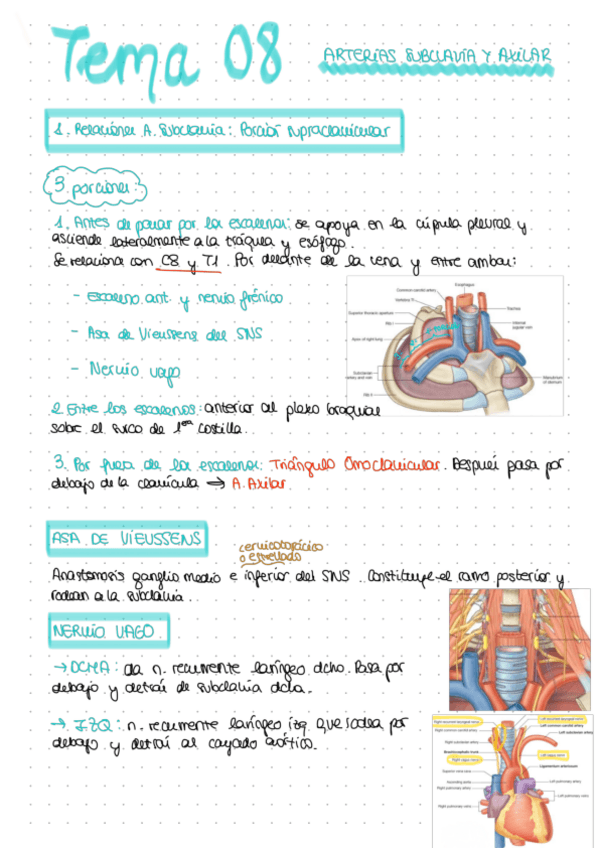 Tema 08
ARTERIAS SUBCLAVIA Y AXILAR
1. Relaciones A. Subclavia: Porción supraclavicular
3 porciones:
1. Antes de pasar por los escalenos: se apoya en la cúpula pleural y
asciende lateralmente a la tráquea y esófago.
Se relaciona con C8 y T1. Por delante de la vena y entre ambas:
- Escaleno ant. y nervio frénico
- Asa de Vieussens del SNS
- Nervio vago
Esophagus
Common carotid artery
Superior thoracic aperture
Rib I
Trachea
Internal
jugular vein
Apex of right lung
Subclavian
artery and vein
Manubrium
of sternum
Rib II
2. Entre los escalenos: anterior al plexo braquial
sobre el surco de 1era costilla.
3. Por fuera de los escalenos: Triángulo Omoclavicular. Después pasa por
debajo de la clavícula → A. Axilar.
ASA DE VIEUSSENS
cervicotorácico
o estrellado
Anastomosis ganglio medio e inferior del SNS. Constituye el ramo posterior y
rodean a la subclavia.
NERVIO VAGO.
→ DCHA: da n. recurrente laríngeo dcho. Pasa por
debajo y detrás de subclavia dcha.
→ IZQ: n. recurrente laríngeo izq que rodea por
debajo y detrás al cayado aórtico.
Right recurrent laryngeal nerve
Right common carotid artery
Right subclavian artery
Brachiocephalic trunk
Right vagus nerve
Superior vena cava
Ascending aorta
Right pulmonary artery
Right pulmonary veins
Left recurrent laryngeal nerve
Left common carotid artery
Left subclavian artery
Left vagus nerve
Ligamentum arteriosum
Left pulmonary artery
Left pulmonary veins